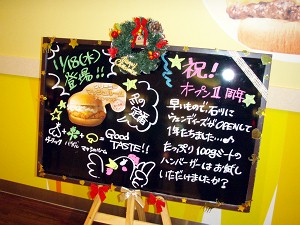 11/18(水)
登場!!
祝!
オープンⅡ周年
早いもので、石川に
ウェンディーズがOPENして
1年たちました…♪
たっぷり100gミートの
ハンバーガーはお試し
いただけましたか?
＋
＋
=Good
TASTE!!